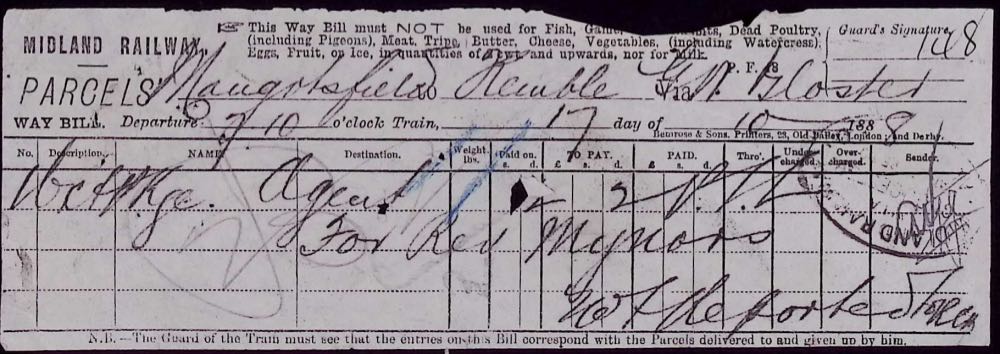 MIDLAND RAILWAY.
This Way Bill must NOT be used for Fish, Dead Poultry,
(including Pigeons), Meat, Tripe, Butter, Cheese, Vegetables, (including Watercress),
Eggs, Fruit, or Ice, in quantities of and upwards, nor for Milk.
Guard's Signature,
148
P. F. 8
PARCELS' Mangotsfield to Kemble Via Gloster
WAY BILL. Departure 7 10 o'clock Train, 17 day of 10 1888
Bemrose & Sons, Printers, 23, Old Bailey, London; and Derby.
No. Description. NAME. Destination. Weight lbs. Paid on. s. d. TO PAY. £ s. d. PAID. £ s. d. Thro'. Under-charged. Over-charged. Sender.
Pkge. Agent 2
For Rev Mynors
Not Reported
N.B.—The Guard of the Train must see that the entries on this Bill correspond with the Parcels delivered to and given up by him.